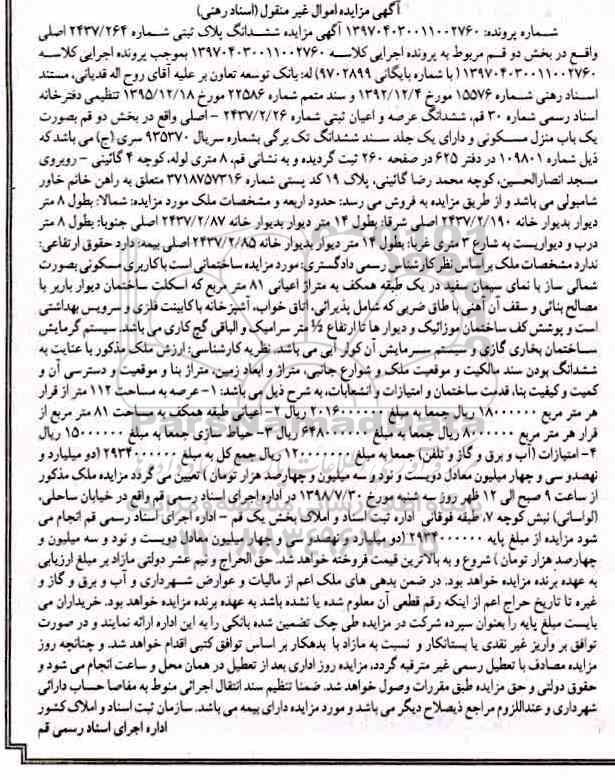 آگهی مزایده اموال غیر منقول (اسناد رهنی)
شماره پرونده: ۱۳۹۷۰۴۰۳۰۰۱۱۰۰۲۷۶۰ آگهی مزایده ششدانگ پلاک ثبتی شماره ۲۴۳۷/۲۶۴ اصلی
واقع در بخش دو قم مربوط به پرونده اجرایی کلاسه ۱۳۹۷۰۴۰۳۰۰۱۱۰۰۲۷۶۰ بموجب پرونده اجرایی کلاسه
۱۳۹۷۰۴۰۳۰۰۱۱۰۰۲۷۶۰ ( با شماره بایگانی ۹۷۰۲۸۹۹) له: بانک توسعه تعاون بر علیه آقای روح اله قدیانی، مستند
اسناد رهنی شماره ۱۵۵۷۶ مورخ ۱۳۹۲/۱۲/۴ و سند متمم شماره ۲۲۵۸۶ مورخ ۱۳۹۵/۱۲/۱۸ تنظیمی دفترخانه
اسناد رسمی شماره ۳۰ قم، ششدانگ عرصه و اعیان ثبتی شماره ۲۴۳۷/۲/۲۶ - اصلی واقع در بخش دو قم بصورت
یک باب منزل مسکونی و دارای یک جلد سند ششدانگ تک برگی بشماره سریال ۹۳۵۳۷۰ سری (ج) می باشد که
ذیل شماره ۱۰۹۸۰۱ در دفتر ۶۲۵ در صفحه ۲۶۰ ثبت گردیده و به نشانی قم، ۸ متری لوله، کوچه ۴ گائینی - روبروی
مسجد انصارالحسین، کوچه محمد رضا گائینی، پلاک ۱۹ کد پستی شماره ۳۷۱۸۷۵۷۳۱۶ متعلق به راهن خانم خاور
شامبولی می باشد و از طریق مزایده به فروش می رسد: حدود اربعه و مشخصات ملک مورد مزایده: شمالا: بطول ۸ متر
دیوار بدیوار خانه ۲۴۳۷/۲/۱۹۰ اصلی شرقا: بطول ۱۴ متر دیوار بدیوار خانه ۲۴۳۷/۲/۸۷ اصلی جنوبا: بطول ۸ متر
درب و دیواریست به شارع ۳ متری غربا: بطول ۱۴ متر دیوار بدیوار خانه ۲۴۳۷/۲/۸۵ اصلی بیمه: دارد حقوق ارتفاعی:
ندارد مشخصات ملک بر اساس نظر کارشناس رسمی دادگستری: مورد مزایده ساختمانی است با کاربری مسکونی بصورت
شمالی ساز با نمای سیمان سفید در یک طبقه همکف به متراژ اعیانی ۸۱ متر مربع که اسکلت ساختمان دیوار باربر با
مصالح بنائی و سقف آن آهنی با طاق ضربی که شامل پذیرائی، اتاق خواب، آشپزخانه با کابینت فلزی و سرویس بهداشتی
است و پوشش کف ساختمان موزائیک و دیوار ها تا ارتفاع ½ متر سرامیک و الباقی گچ کاری می باشد. سیستم گرمایش
ساختمان بخاری گازی و سیستم سرمایش آن کولر آبی می باشد. نظریه کارشناسی: ارزش ملک مذکور با عنایت به
ششدانگ بودن سند مالکیت و موقعیت ملک و شوارع جانبی، متراژ و ابعاد زمین، متراژ بنا و موقعیت و دسترسی آن و
کمیت و کیفیت بنا، قدمت ساختمان و امتیازات و انشعابات، به شرح ذیل می باشد: ۱- عرصه به مساحت ۱۱۲ متر از قرار
هر متر مربع ۱۸۰۰۰۰۰۰ ریال جمعا به مبلغ ۲۰۱۶۰۰۰۰۰۰ ریال ۲- اعیانی طبقه همکف به مساحت ۸۱ متر مربع از
قرار هر متر مربع ۸۰۰۰۰۰۰ ریال جمعا به مبلغ ۶۴۸۰۰۰۰۰۰ ریال ۳- حیاط سازی جمعا به مبلغ ۱۵۰۰۰۰۰۰۰ ریال
۴- امتیازات (آب و برق و گاز و تلفن) جمعا به مبلغ ۱۲۰۰۰۰۰۰۰ ریال جمع کل به مبلغ ۲۹۳۴۰۰۰۰۰۰ (دو میلیارد و
نهصدو سی و چهار میلیون معادل دویست و نود و سه میلیون و چهارصد هزار تومان ) تعیین می گردد مزایده ملک مذکور
از ساعت ۹ صبح الی ۱۲ ظهر روز سه شنبه مورخ ۱۳۹۸/۷/۳۰ در اداره اجرای اسناد رسمی قم واقع در خیابان ساحلی،
(لواسانی) نبش کوچه ۷، طبقه فوقانی اداره ثبت اسناد و املاک بخش یک قم - اداره اجرای اسناد رسمی قم انجام می
شود مزایده از مبلغ پایه ۲۹۳۴۰۰۰۰۰۰ (دو میلیارد و نهصدو سی و چهار میلیون معادل دویست و نود و سه میلیون و
چهارصد هزار تومان ) شروع و به بالاترین قیمت فروخته خواهد شد. حق الحراج و نیم عشر دولتی مازاد بر مبلغ ارزیابی
به عهده برنده مزایده خواهد بود. در ضمن بدهی های ملک اعم از مالیات و عوارض شهرداری و آب و برق و گاز و
غیره تا تاریخ حراج اعم از اینکه رقم قطعی آن معلوم شده یا نشده باشد به عهده برنده مزایده خواهد بود. خریداران می
بایست مبلغ پایه را بعنوان سپرده شرکت در مزایده طی چک تضمین شده بانکی را به این اداره ارائه نمایند و در صورت
توافق بر واریز غیر نقدی یا بستانکار و نسبت به مازاد با بدهکار بر اساس توافق کتبی اقدام خواهد شد. و چنانچه روز
مزایده مصادف با تعطیل رسمی غیر مترقبه گردد، مزایده روز اداری بعد از تعطیل در همان محل و ساعت انجام می شود و
حقوق دولتی و حق مزایده طبق مقررات وصول خواهد شد. ضمنا تنظیم سند انتقال اجرائی منوط به مفاصا حساب دارائی
شهرداری و عنداللزوم مراجع ذیصلاح دیگر می باشد و مورد مزایده دارای بیمه می باشد. سازمان ثبت اسناد و املاک کشور
اداره اجرای اسناد رسمی قم